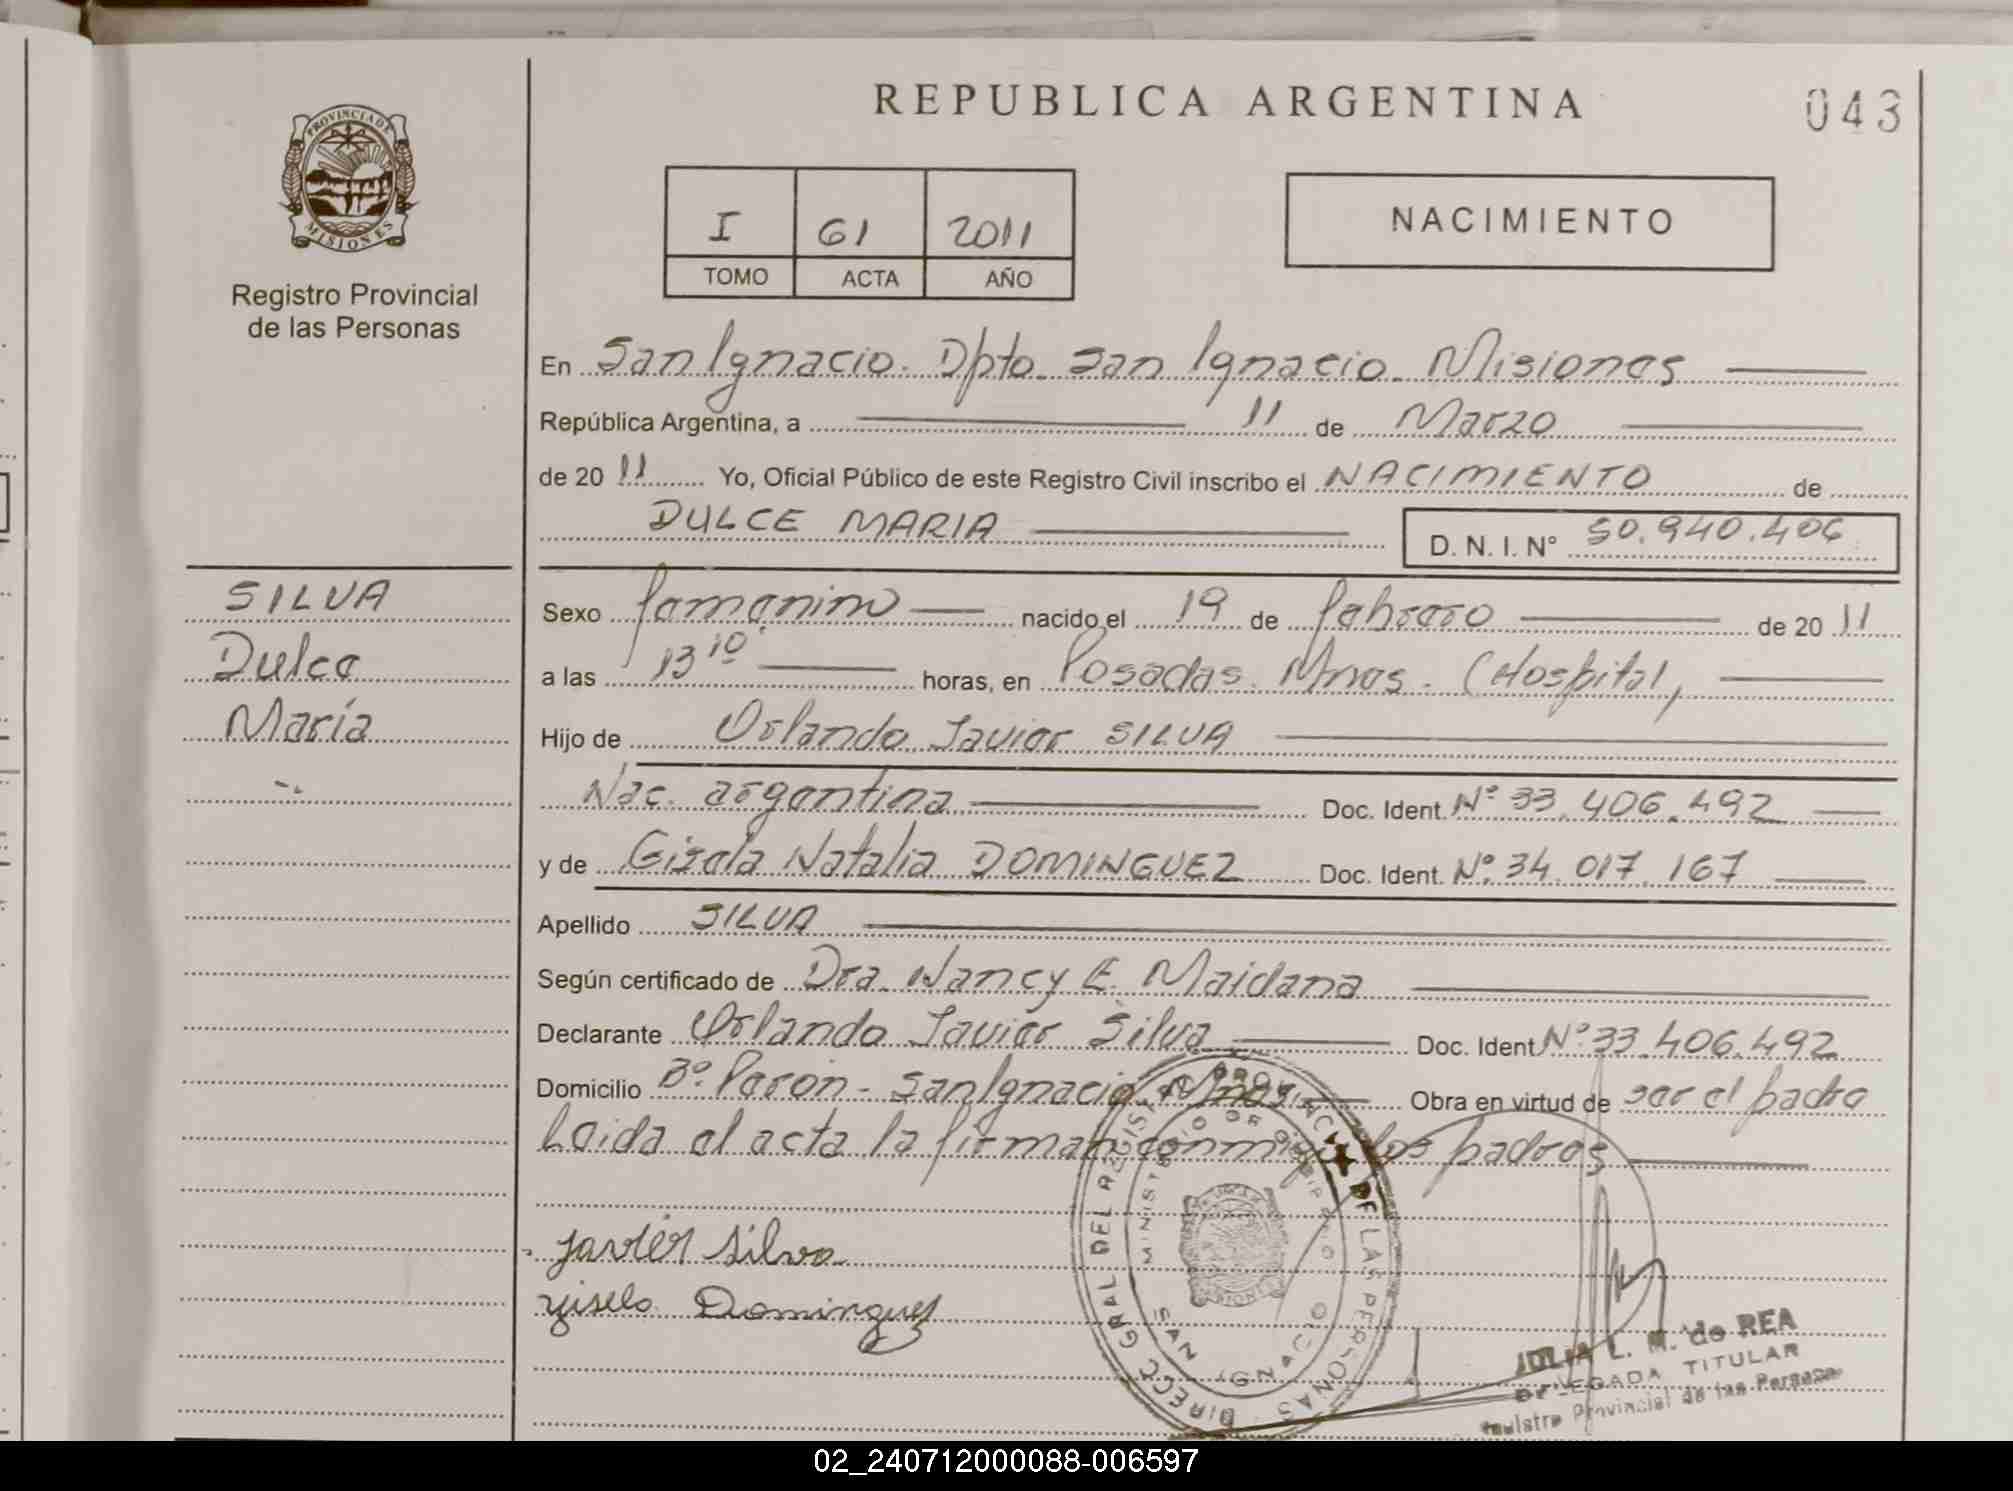 REPUBLICA ARGENTINA
043
PROVINCIA DE
MISIONES
Registro Provincial
de las Personas
I 61 2011
TOMO ACTA AÑO
NACIMIENTO
En San Ignacio. Dpto. San Ignacio. Misiones
República Argentina, a 11 de Marzo
de 20 11 Yo, Oficial Público de este Registro Civil inscribo el NACIMIENTO de
DULCE MARIA D. N. I. N° 50.940.406
SILVA
Dulce
María
Sexo femenino nacido el 19 de febrero de 20 11
a las 13 10 horas, en Posadas. Mnes. (Hospital)
Hijo de Orlando Javier SILVA
Nac. argentina Doc. Ident. N° 33.406.492
y de Gisela Natalia DOMINGUEZ Doc. Ident. N°. 34.017.167
Apellido SILVA
Según certificado de Dra. Nancy E. Maidana
Declarante Orlando Javier Silva Doc. Ident. N° 33.406.492
Domicilio B°. Perón - San Ignacio Mnes. Obra en virtud de ser el padre
Leida el acta la firman conmigo los padres
Javier Silva
Gisela Dominguez
DIRECC. GRAL. DEL REGISTRO PROVINCIAL DE LAS PERSONAS
MINISTERIO DE GOBIERNO
SAN IGNACIO
JULIA L. M. de REA
DELEGADA TITULAR
Registro Provincial de las Personas
02_240712000088-006597